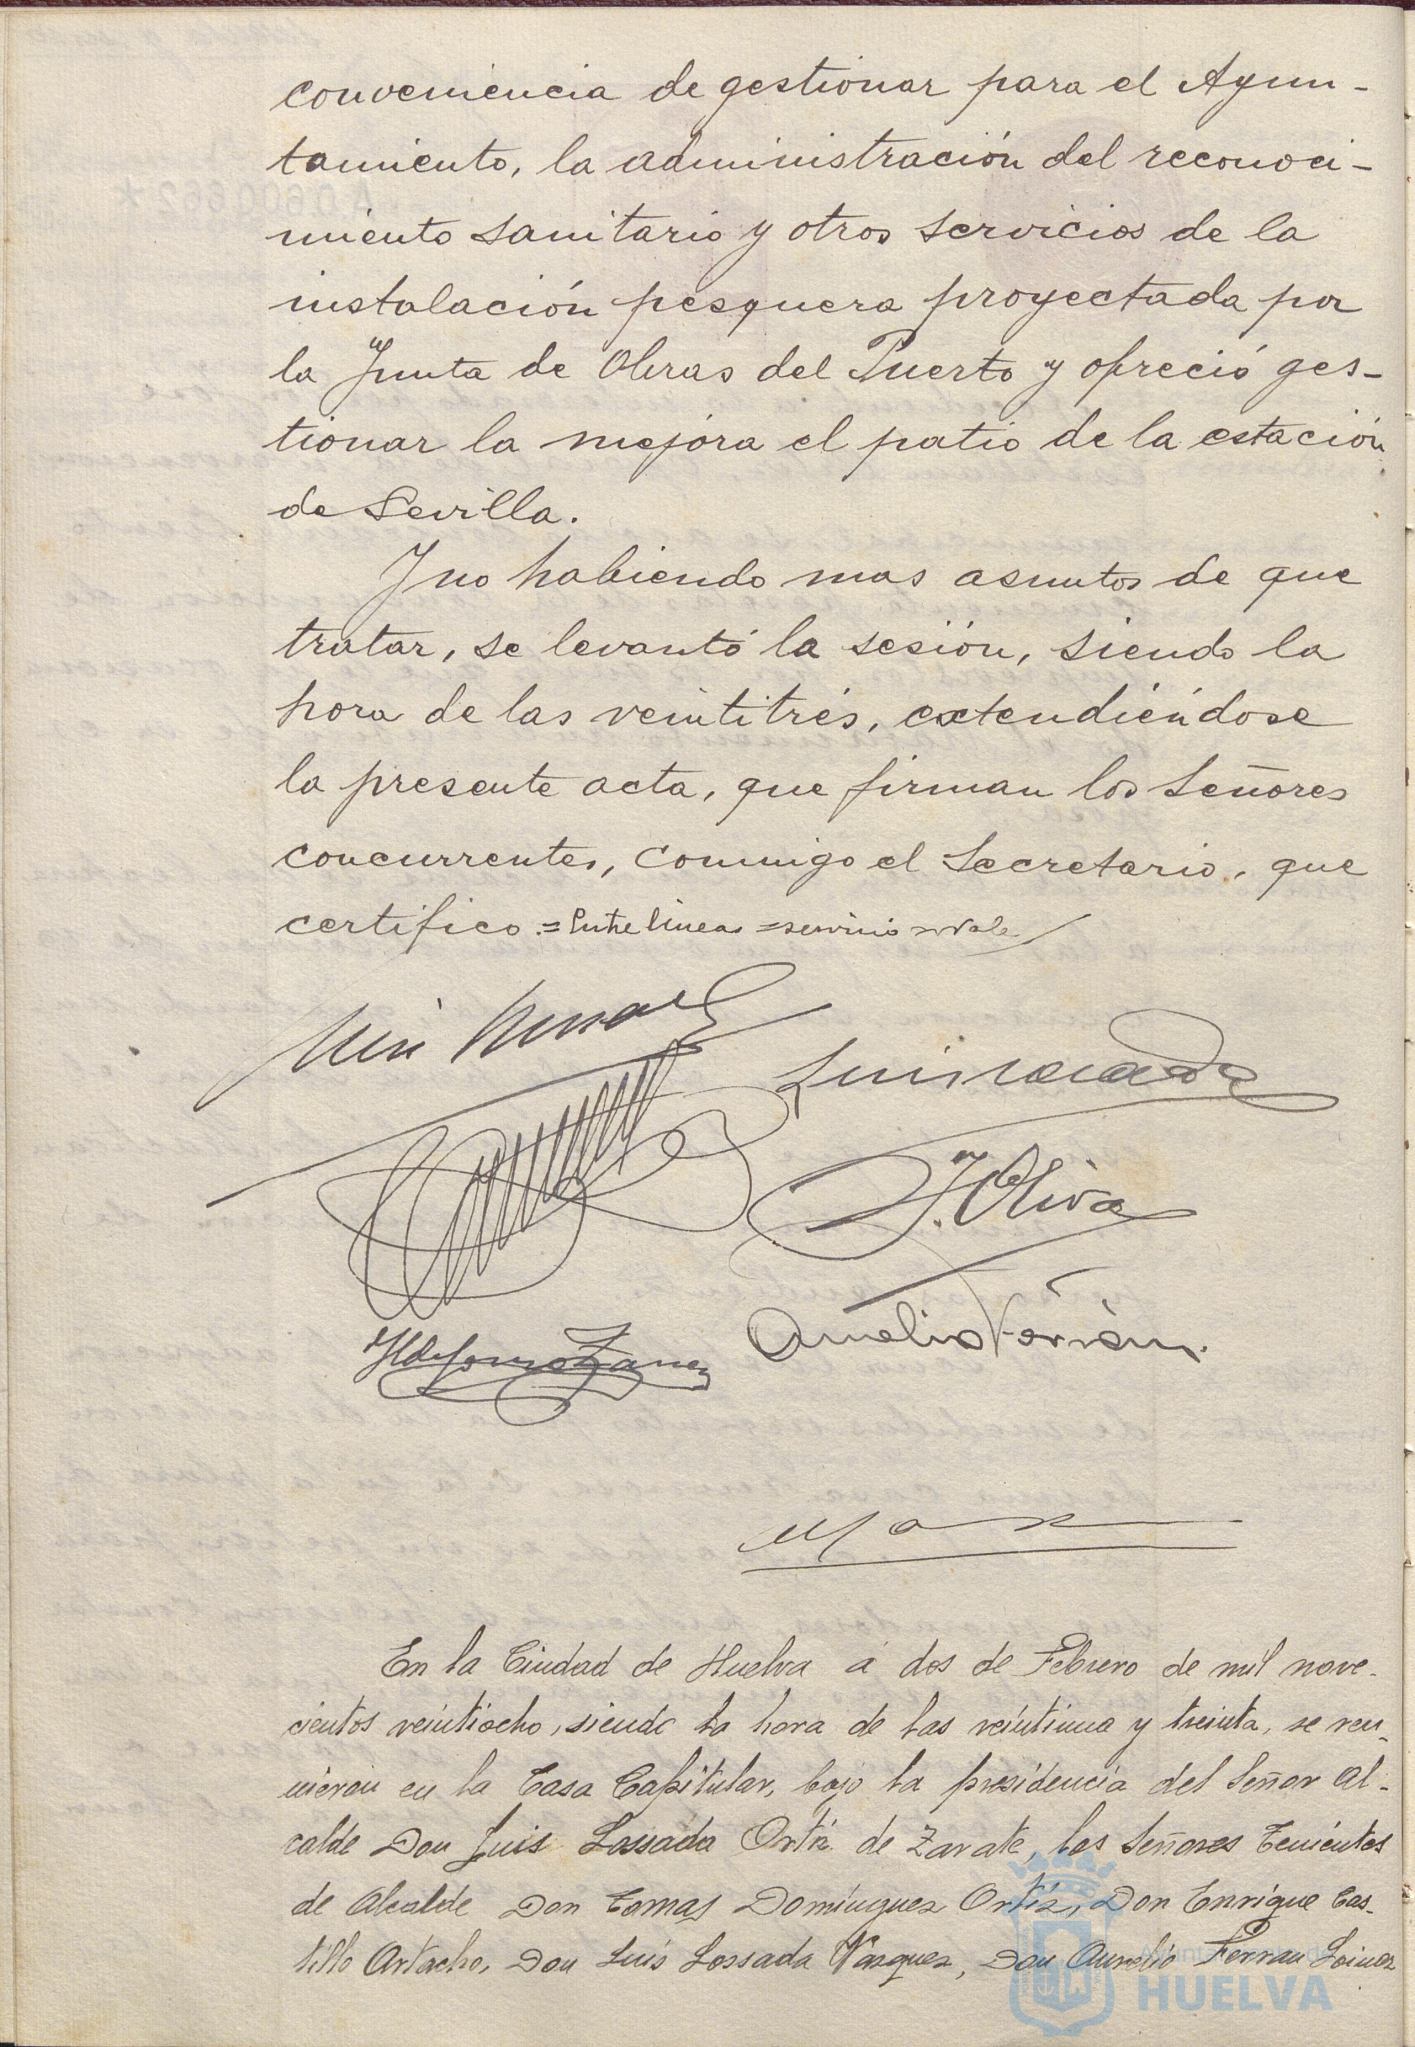 conveniencia de gestionar para el Ayun-
tamiento, la administración del reconoci-
miento sanitario y otros servicios de la
instalación pesquera proyectada por
la Junta de Obras del Puerto y ofreció ges-
tionar la mejora el patio de la estación
de Sevilla.
Y no habiendo mas asuntos de que
tratar, se levantó la sesión, siendo la
hora de las veintitrés, extendiéndose
la presente acta, que firman los Señores
concurrentes, conmigo el Secretario, que
certifico.=Entre lineas=servicio=vale
Luis Lossada
J. Oliva
Ildefonso
Aurelio
En la Ciudad de Huelva á dos de Febrero de mil nove-
cientos veintiocho, siendo la hora de las veintiuna y treinta, se reu-
nieron en la Casa Capitular, bajo la presidencia del Señor Al-
calde Don Luis Lossada Ortiz de Zarate, los Señores Tenientes
de Alcalde Don Tomas Dominguez Ortiz, Don Enrique Cas-
tillo Artacho, Don Luis Lossada Vazquez, Don Aurelio Ferran
Ayuntamiento de
HUELVA